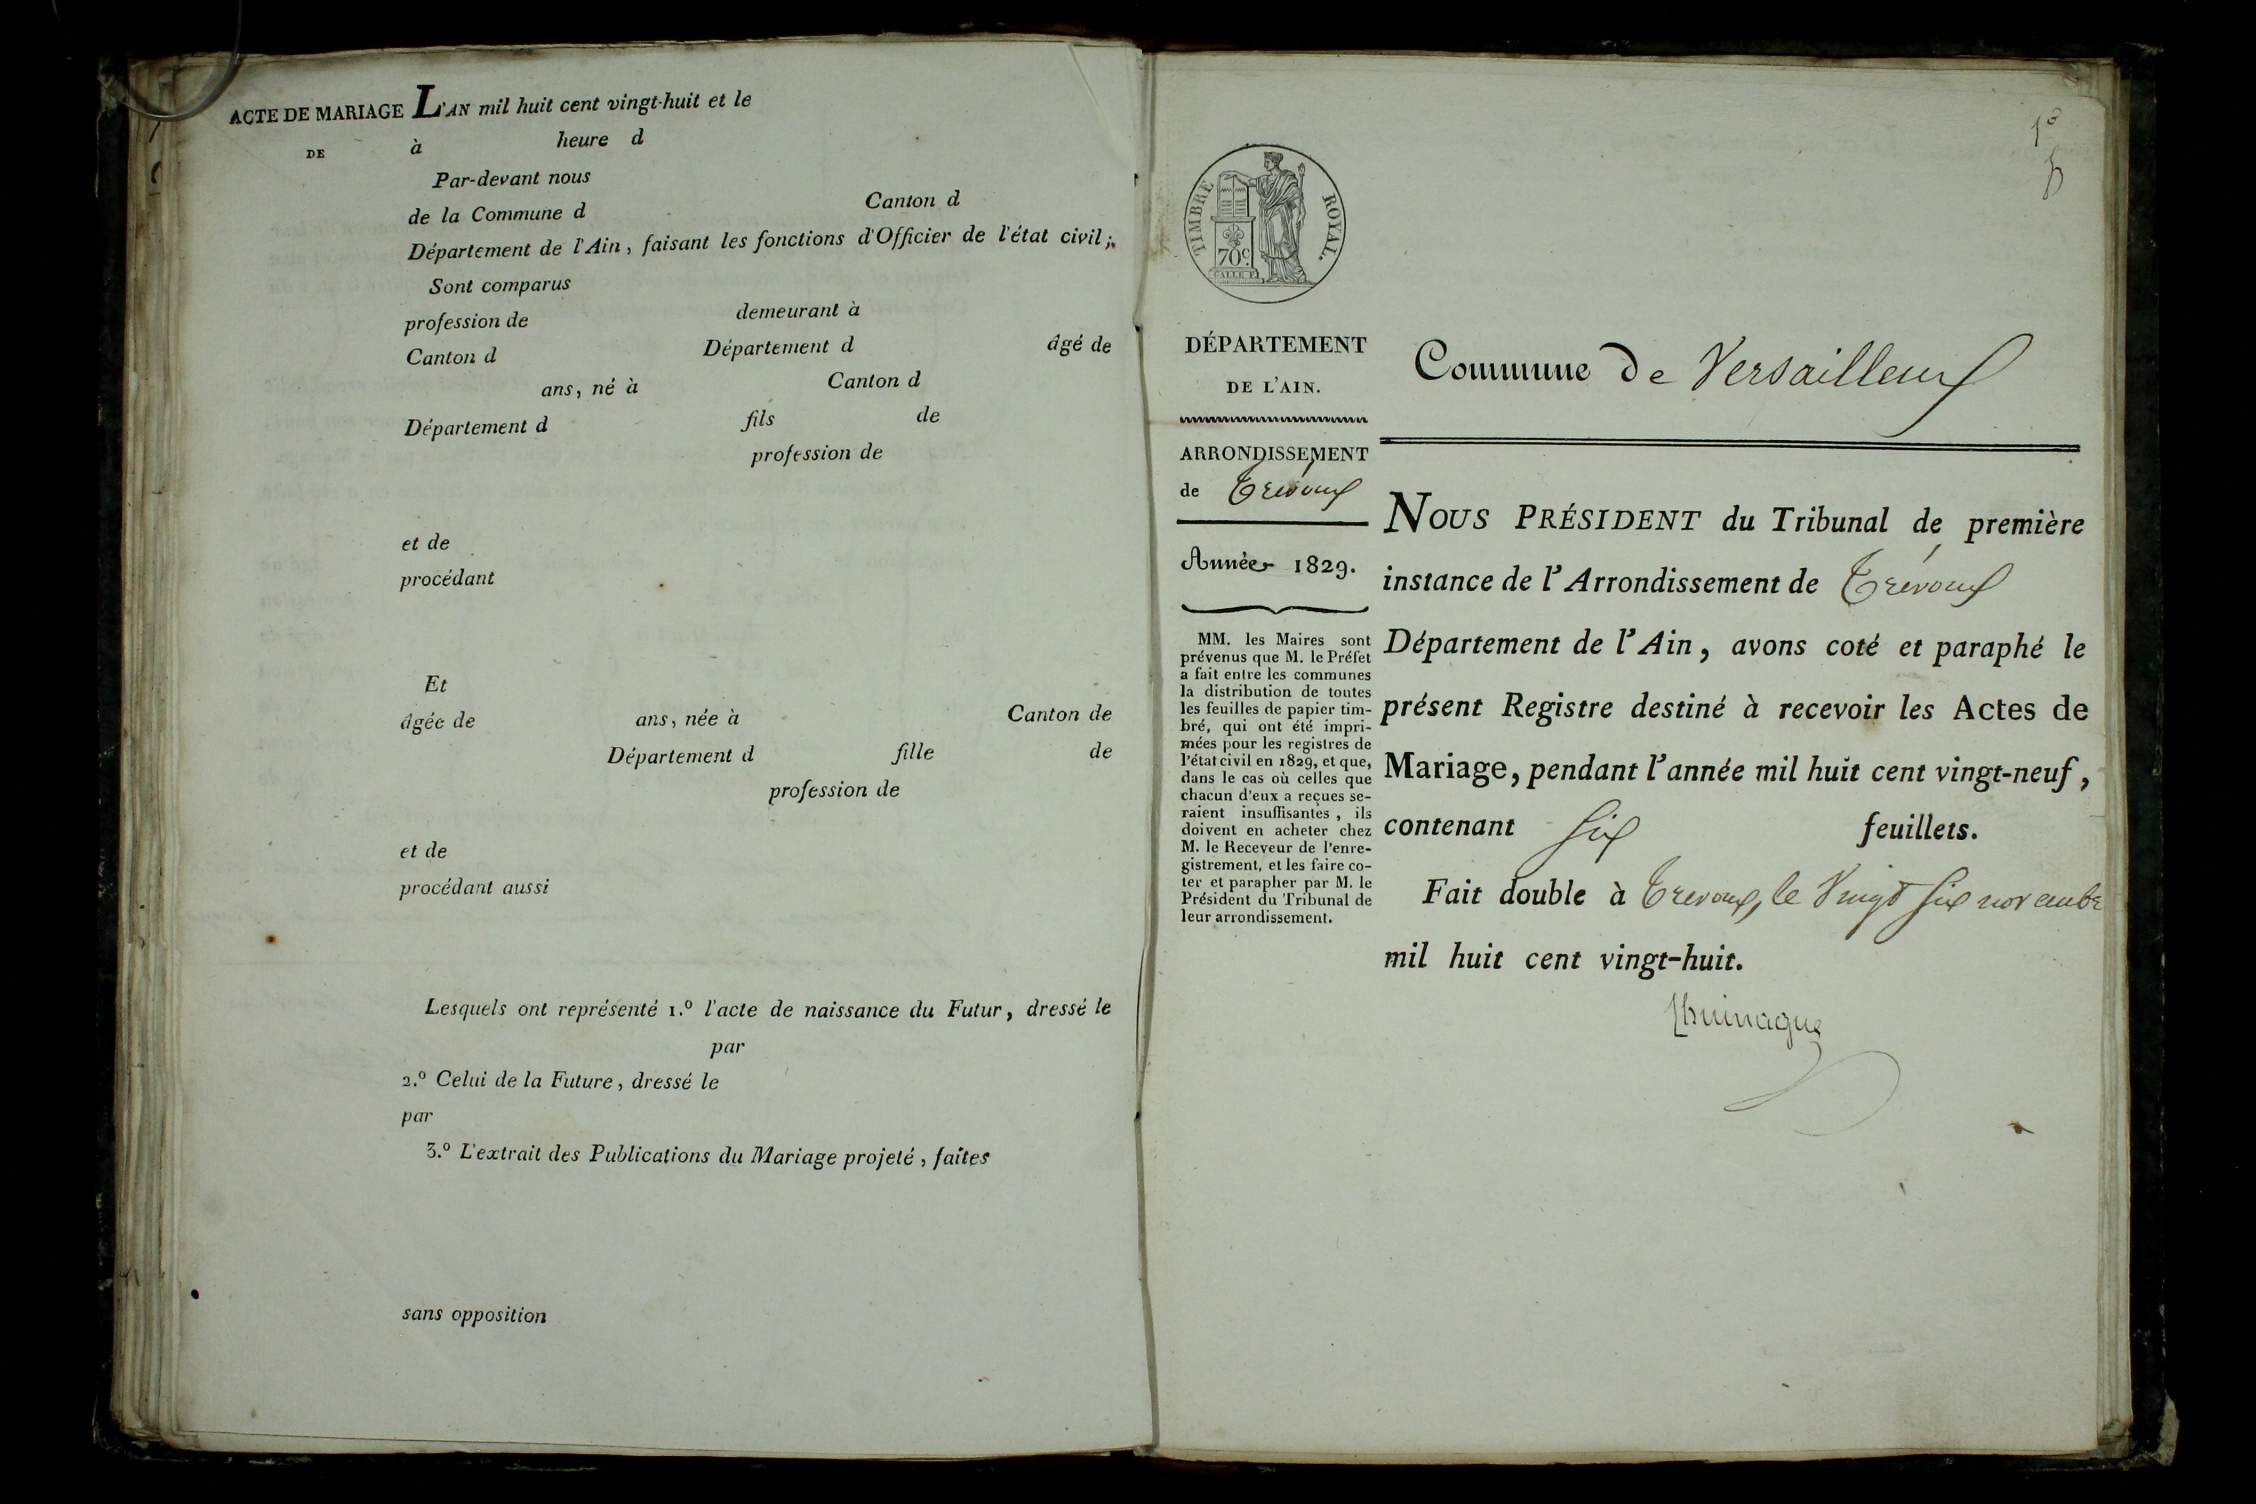 ACTE DE MARIAGE L'AN mil huit cent vingt-huit et le
DE à heure d
Par-devant nous
de la Commune d Canton d
Département de l'Ain, faisant les fonctions d'Officier de l'état civil;
Sont comparus
profession de demeurant à
Canton d Département d âgé de
ans, né à Canton d
Département d fils de
profession de
et de
procédant
Et
âgée de ans, née à Canton de
Département d fille de
profession de
et de
procédant aussi
Lesquels ont représenté 1.º l'acte de naissance du Futur, dressé le
par
2.º Celui de la Future, dressé le
par
3.º L'extrait des Publications du Mariage projeté, faites
sans opposition
TIMBRE ROYAL.
70c.
DÉPARTEMENT
DE L'AIN.
ARRONDISSEMENT
de Trévoux
Année 1829.
MM. les Maires sont
prévenus que M. le Préfet
a fait entre les communes
la distribution de toutes
les feuilles de papier tim-
bré, qui ont été impri-
mées pour les registres de
l'état civil en 1829, et que,
dans le cas où celles que
chacun d'eux a reçues se-
raient insuffisantes, ils
doivent en acheter chez
M. le Receveur de l'enre-
gistrement, et les faire co-
ter et parapher par M. le
Président du Tribunal de
leur arrondissement.
Commune de Versailleux
NOUS PRÉSIDENT du Tribunal de première
instance de l'Arrondissement de Trévoux
Département de l'Ain, avons coté et paraphé le
présent Registre destiné à recevoir les Actes de
Mariage, pendant l'année mil huit cent vingt-neuf,
contenant six feuillets.
Fait double à Trevoux, le Vingt six novembre
mil huit cent vingt-huit.